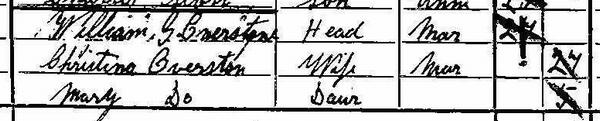 Son
William G Overstone Head Mar
Christina Overston Wife Mar 27
Mary Do Daur 5